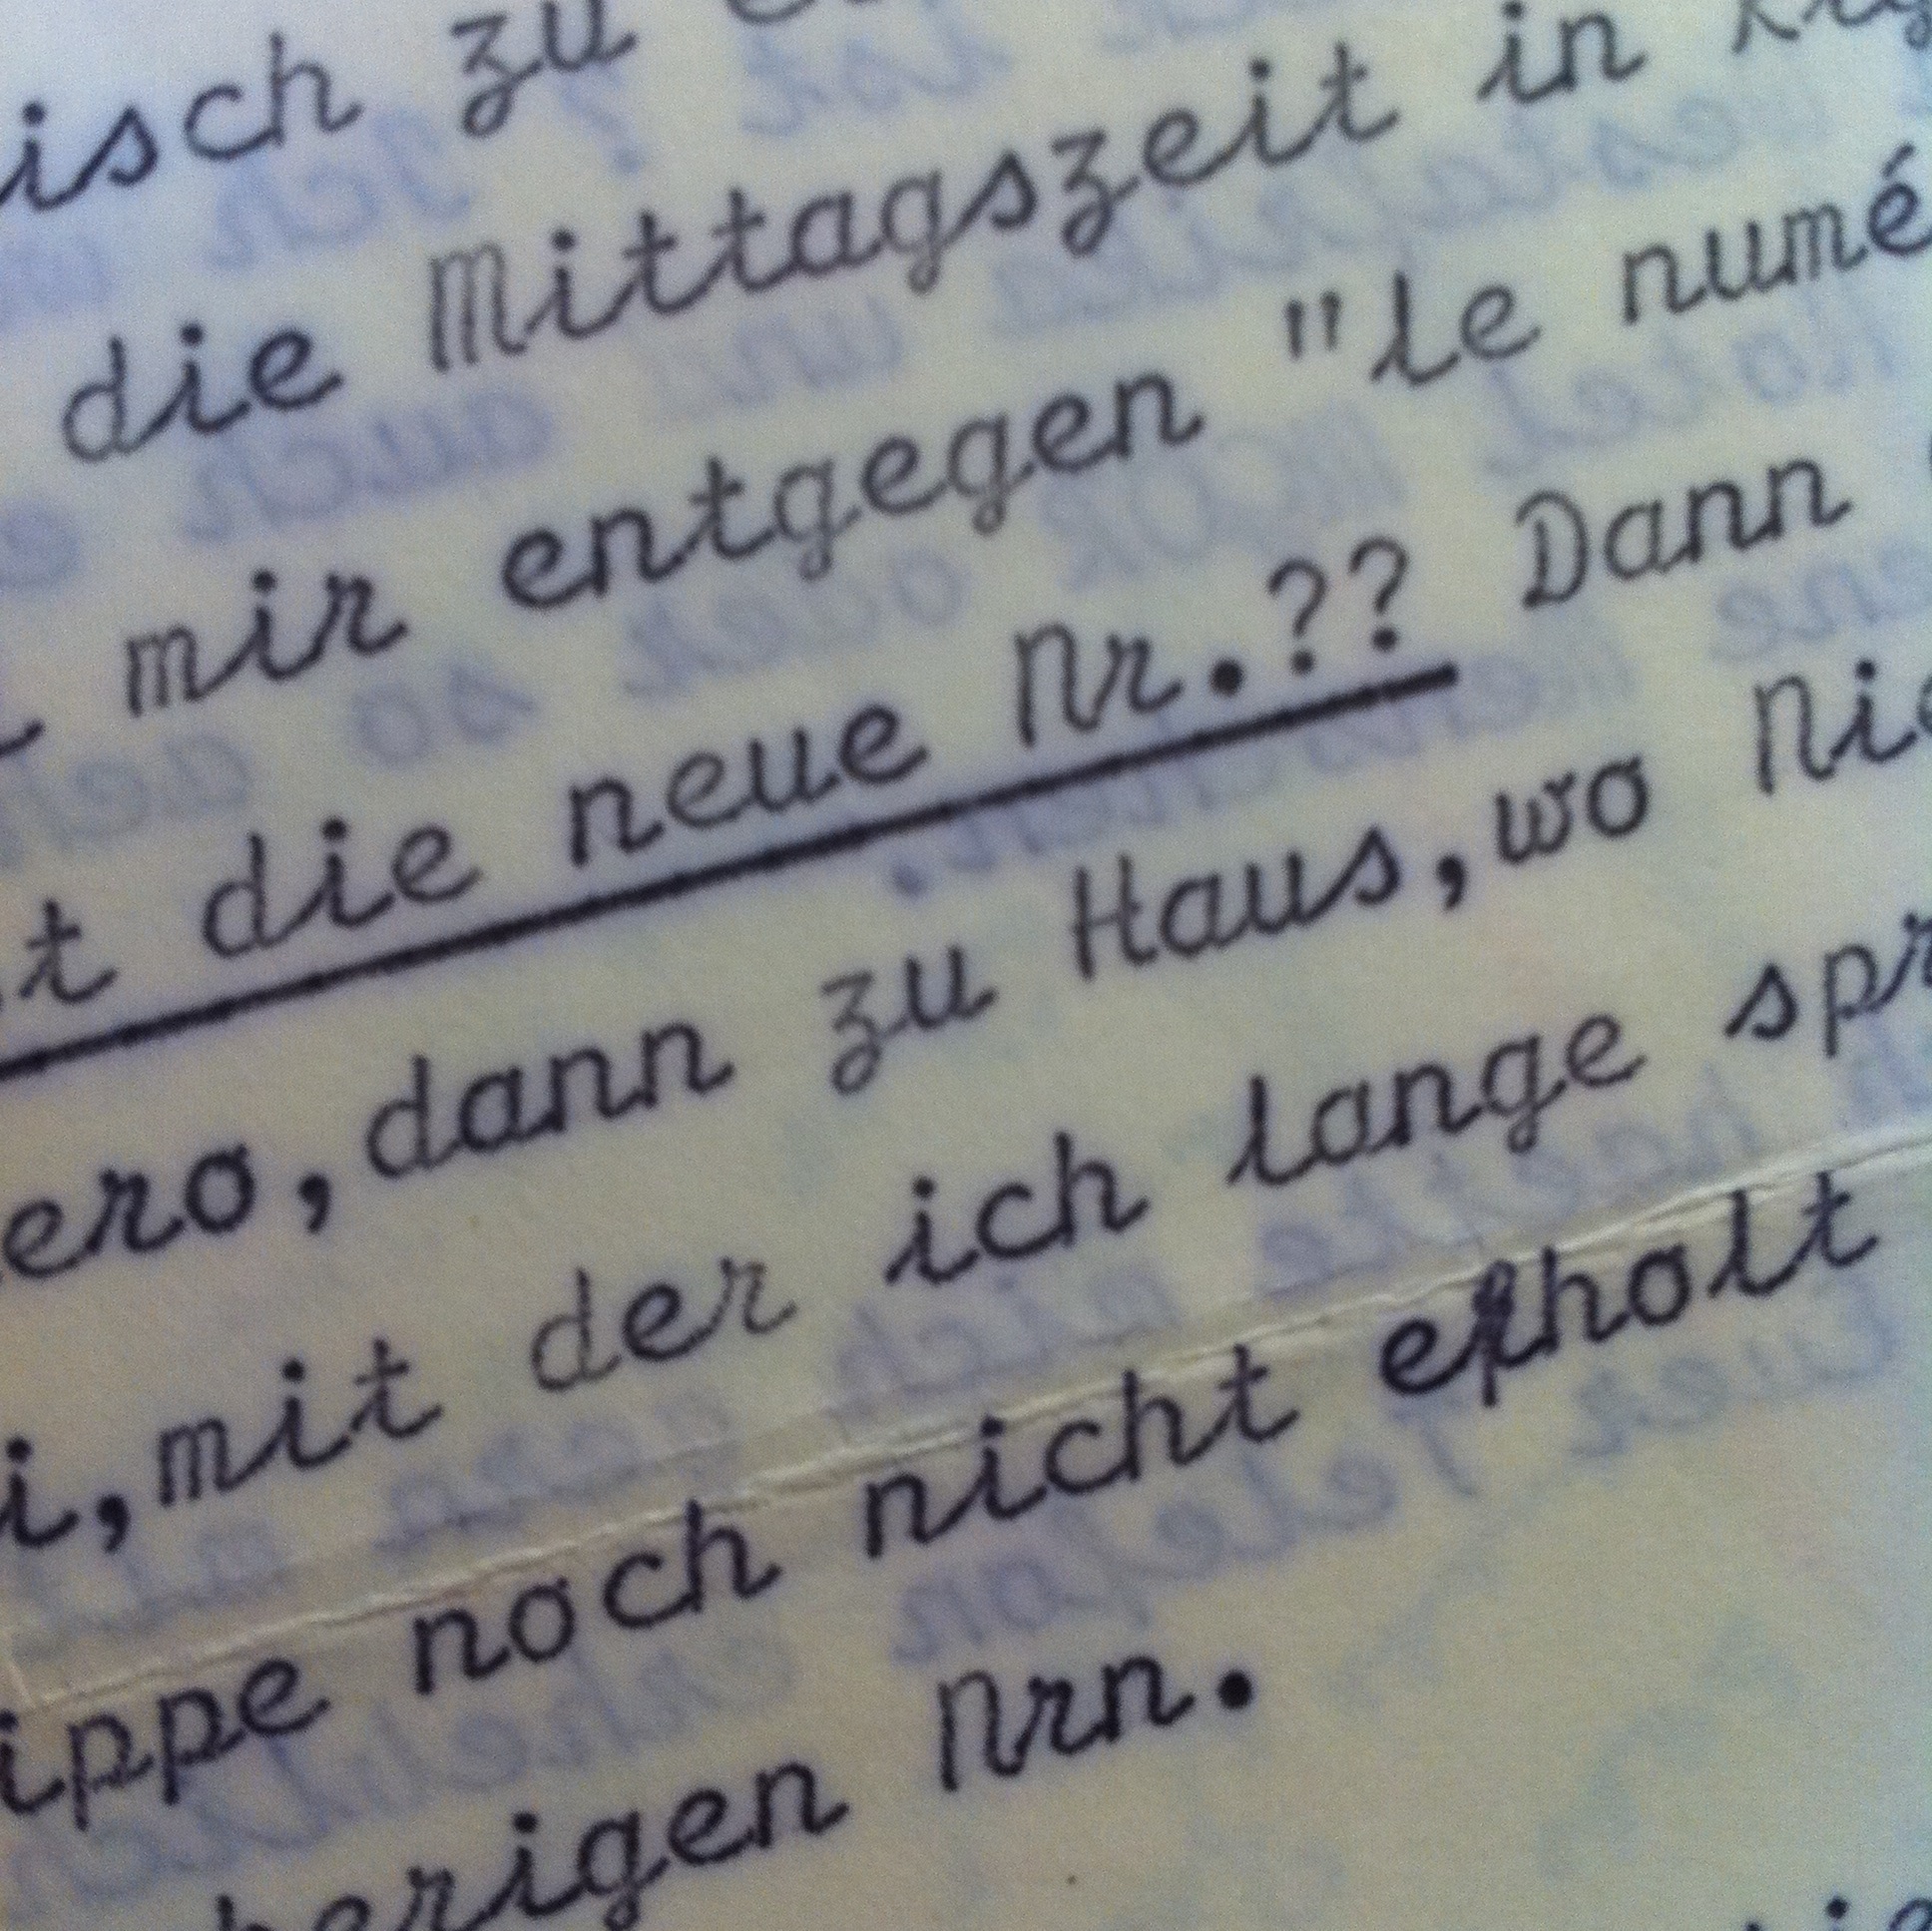 isch zu
die Mittagszeit in
mir entgegen "le numé
t die neue Nr.?? Dann
ero,dann zu Haus,wo Nic
i,mit der ich lange spr
ippe noch nicht erholt
herigen Nrn.